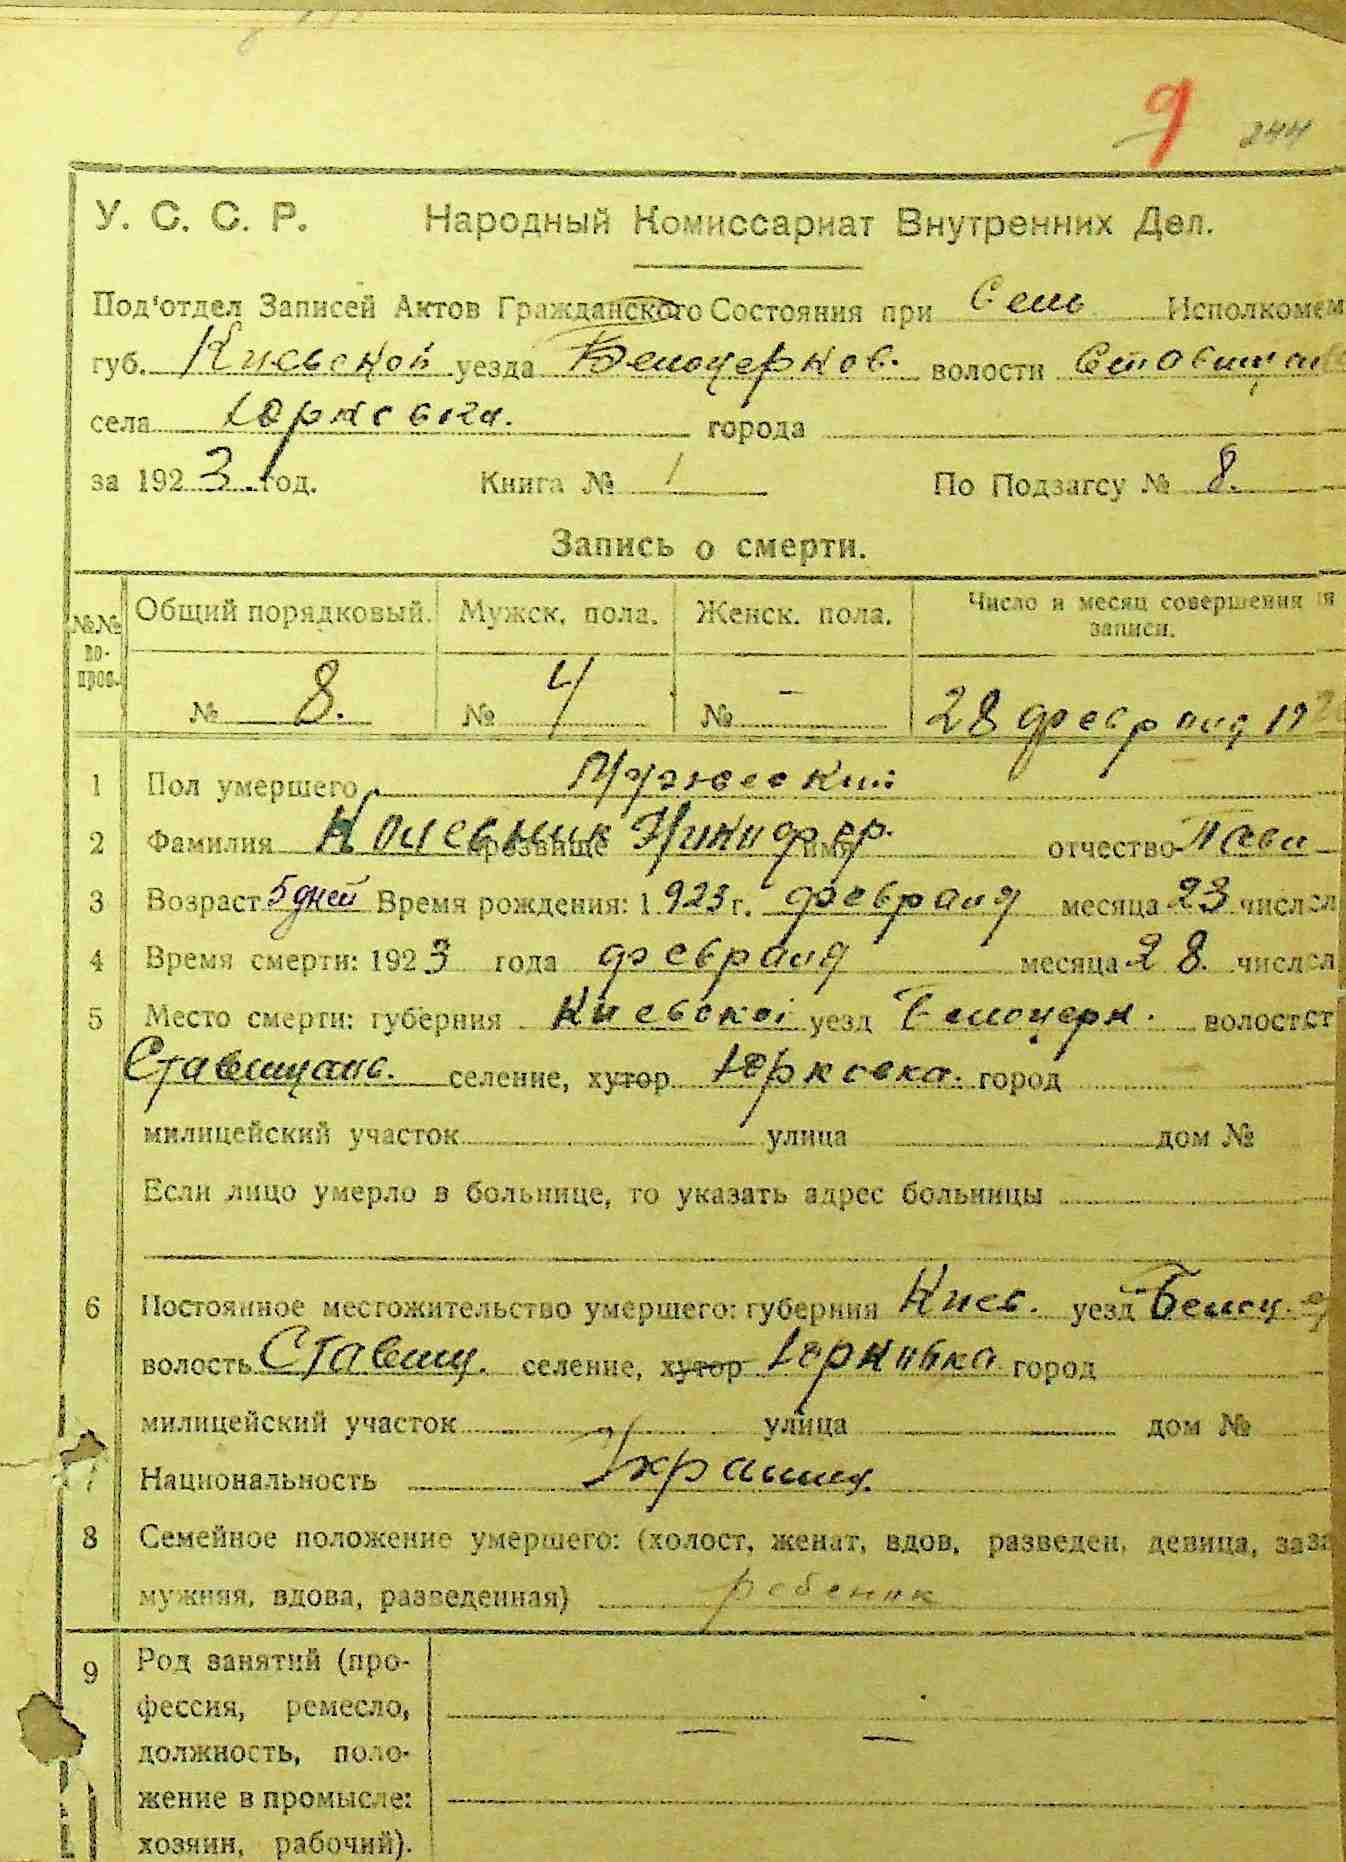 9 244
У. С. С. Р. Народный Комиссариат Внутренних Дел.
Под'отдел Записей Актов Гражданского Состояния при Сель Исполкомем
губ. Киевской уезда Белоцерков. волости Ставищан
села Юрковка. города
за 1923 год. Книга № 1 По Подзагсу № 8.
Запись о смерти.
№№ во-прос. Общий порядковый. Мужск. пола. Женск. пола. Число и месяц совершения
записи.
№ 8. № 4 № - 28 февраля 192
1 Пол умершего Мужеский
2 Фамилия прозвище Никифор. имя отчество
3 Возраст 5 дней Время рождения: 1923 г. февраля месяца 23 числа
4 Время смерти: 1923 года февраля месяца 28. числа
5 Место смерти: губерния Киевской уезд Белоцерк. волост
Ставищанс. селение, хутор Юрковка. город
милицейский участок улица дом №
Если лицо умерло в больнице, то указать адрес больницы
6 Постоянное местожительство умершего: губерния Киев. уезд Белоц.
волость Ставищ. селение, хутор Юрковка город
милицейский участок улица дом №
7 Национальность
8 Семейное положение умершего: (холост, женат, вдов, разведен, девица, за
мужняя, вдова, разведенная) ребенок
9 Род занятий (про-
фессия, ремесло,
должность, поло-
жение в промысле:
хозяин, рабочий).